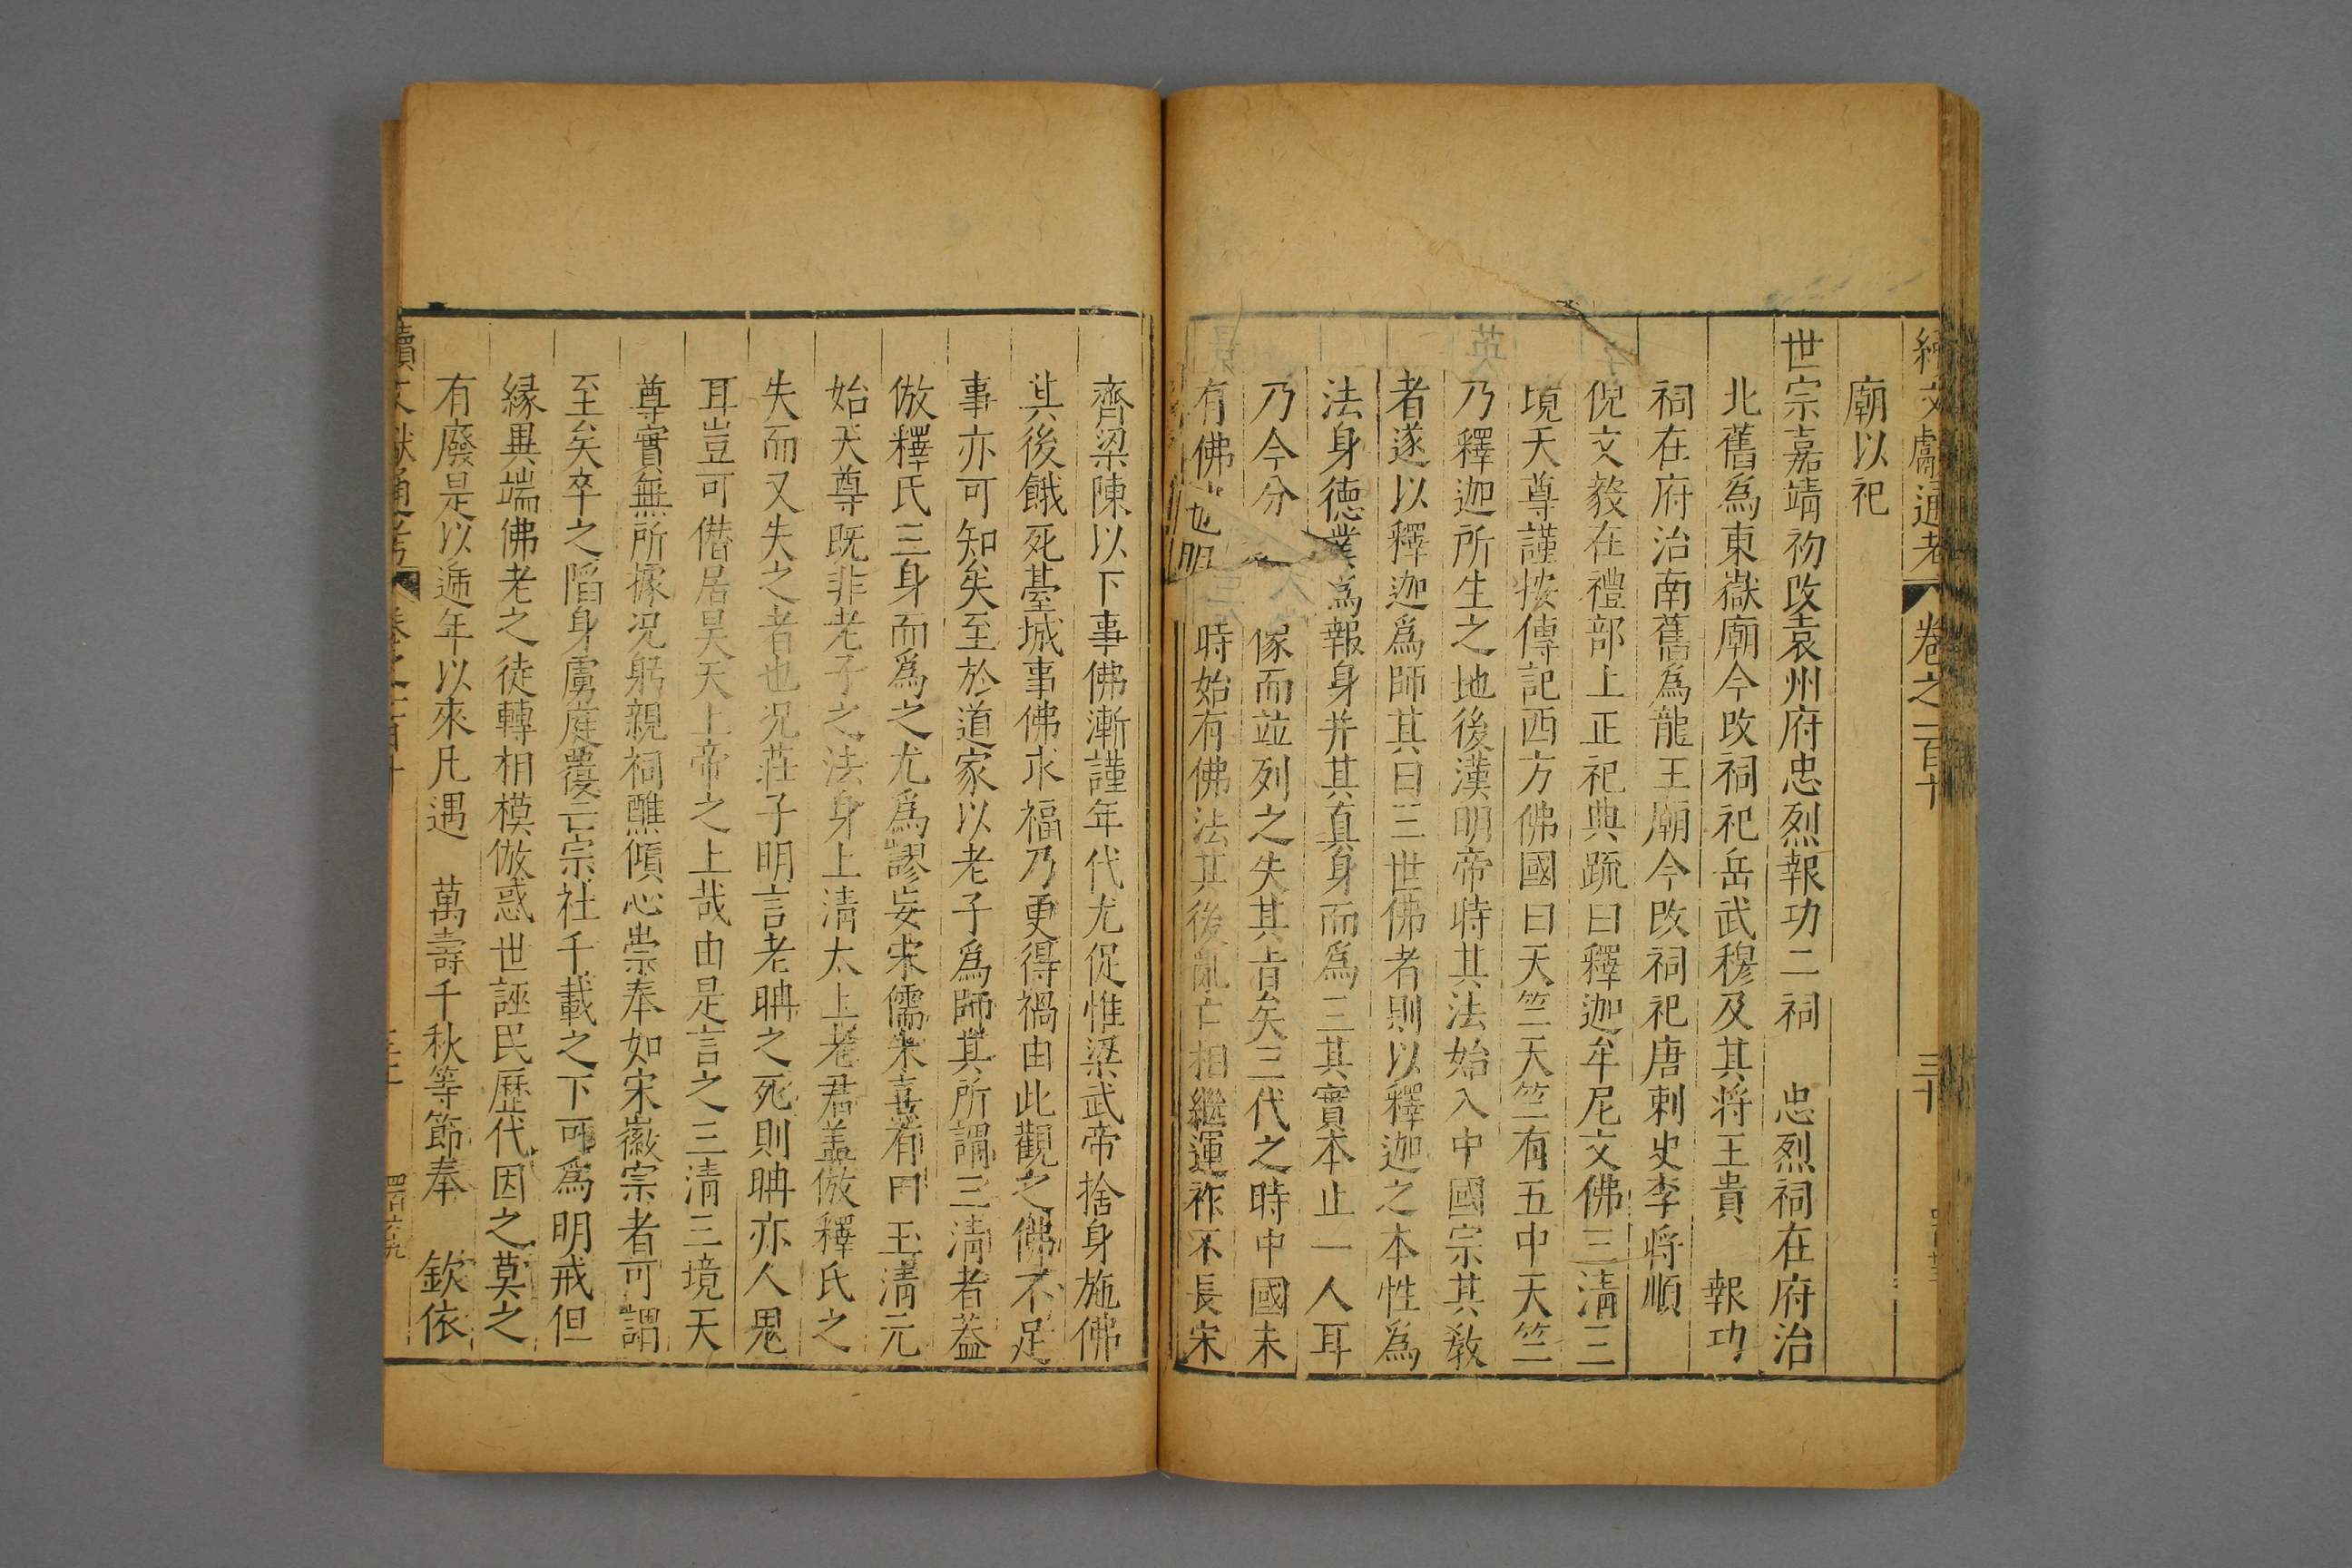 續文獻通考 卷之一百十 三十
廟以祀
世宗嘉靖初改袁州府忠烈報功二祠 忠烈祠在府治
北舊為東嶽廟今改祠祀岳武穆及其將王貴 報功
祠在府治南舊為龍王廟今改祠祀唐刺史李將順
倪文毅在禮部上正祀典疏曰釋迦牟尼文佛三清三
境天尊謹按傳記西方佛國曰天竺天竺有五中天竺
乃釋迦所生之地後漢明帝時其法始入中國宗其教
者遂以釋迦爲師其曰三世佛者則以釋迦之本性爲
法身德業爲報身并其真身而爲三其實本止一人耳
乃今分 像而並列之失其旨矣三代之時中國未
有佛也明 時始有佛法其後亂亡相繼運祚不長宋
齊梁陳以下事佛漸謹年代尤促惟梁武帝捨身施佛
其後餓死臺城事佛求福乃更得禍由此觀之佛不足
事亦可知矣至於道家以老子爲師其所謂三清者蓋
倣釋氏三身而爲之尤爲謬妄宋儒朱熹有曰玉清元
始天尊既非老子之法身上清太上老君盖倣釋氏之
失而又失之者也况莊子明言老聃之死則聃亦人鬼
耳豈可僭居昊天上帝之上哉由是言之三清三境天
尊實無所據况躬親祠醮傾心崇奉如宋徽宗者可謂
至矣卒之陷身虜庭覆亡宗社千載之下可爲明戒但
緣異端佛老之徒轉相模倣惑世誣民歷代因之莫之
有廢是以逓年以來凡遇 萬壽千秋等節奉 欽依
續文獻通考